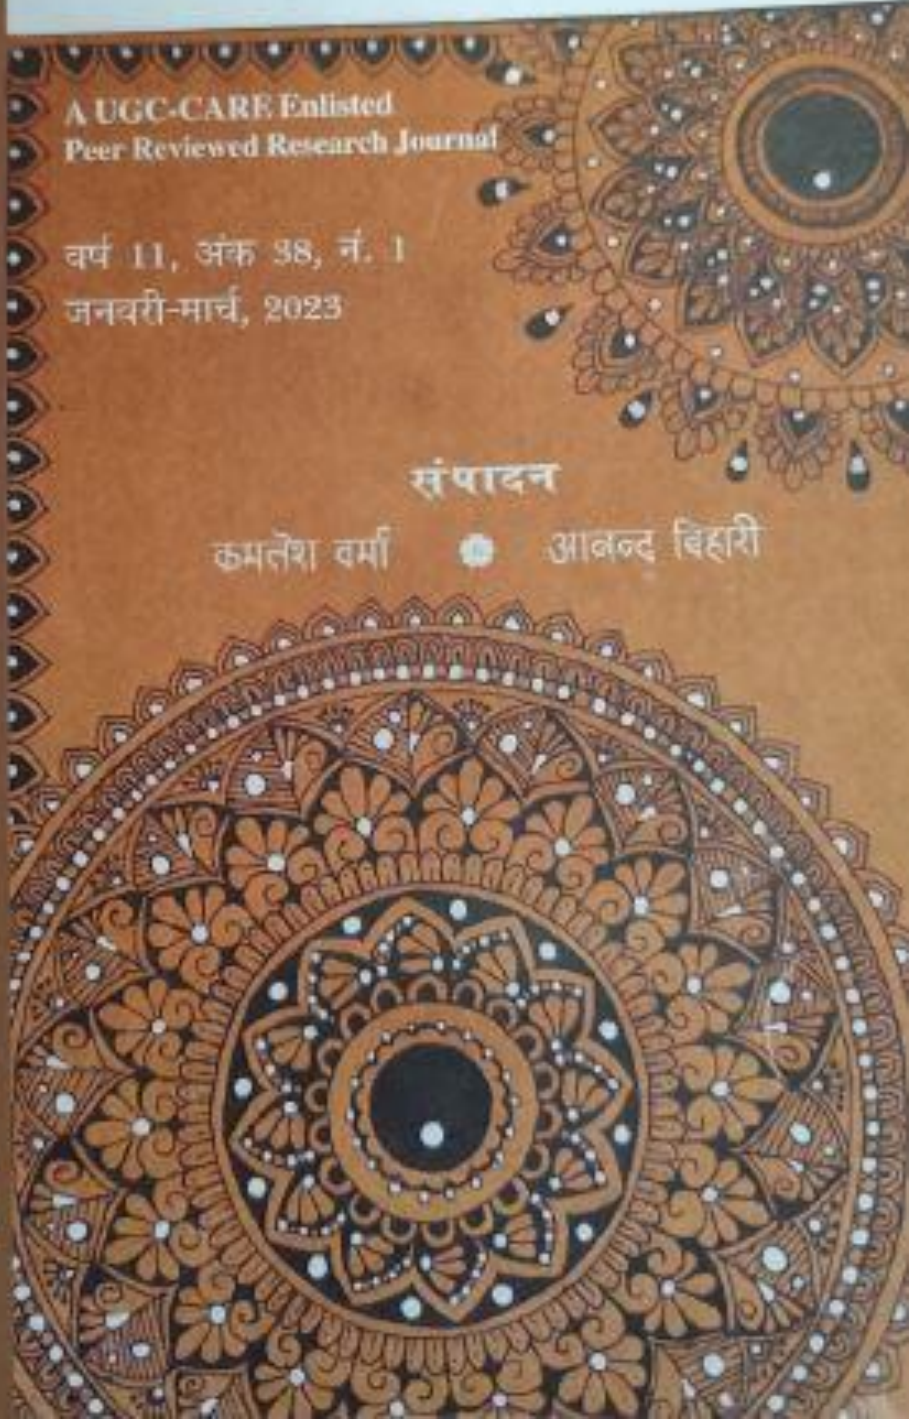 A UGC-CARE Enlisted
Peer Reviewed Research Journal
वर्ष 11, अंक 38, नं. 1
जनवरी-मार्च, 2023
संपादन
कमलेश वर्मा आनन्द बिहारी